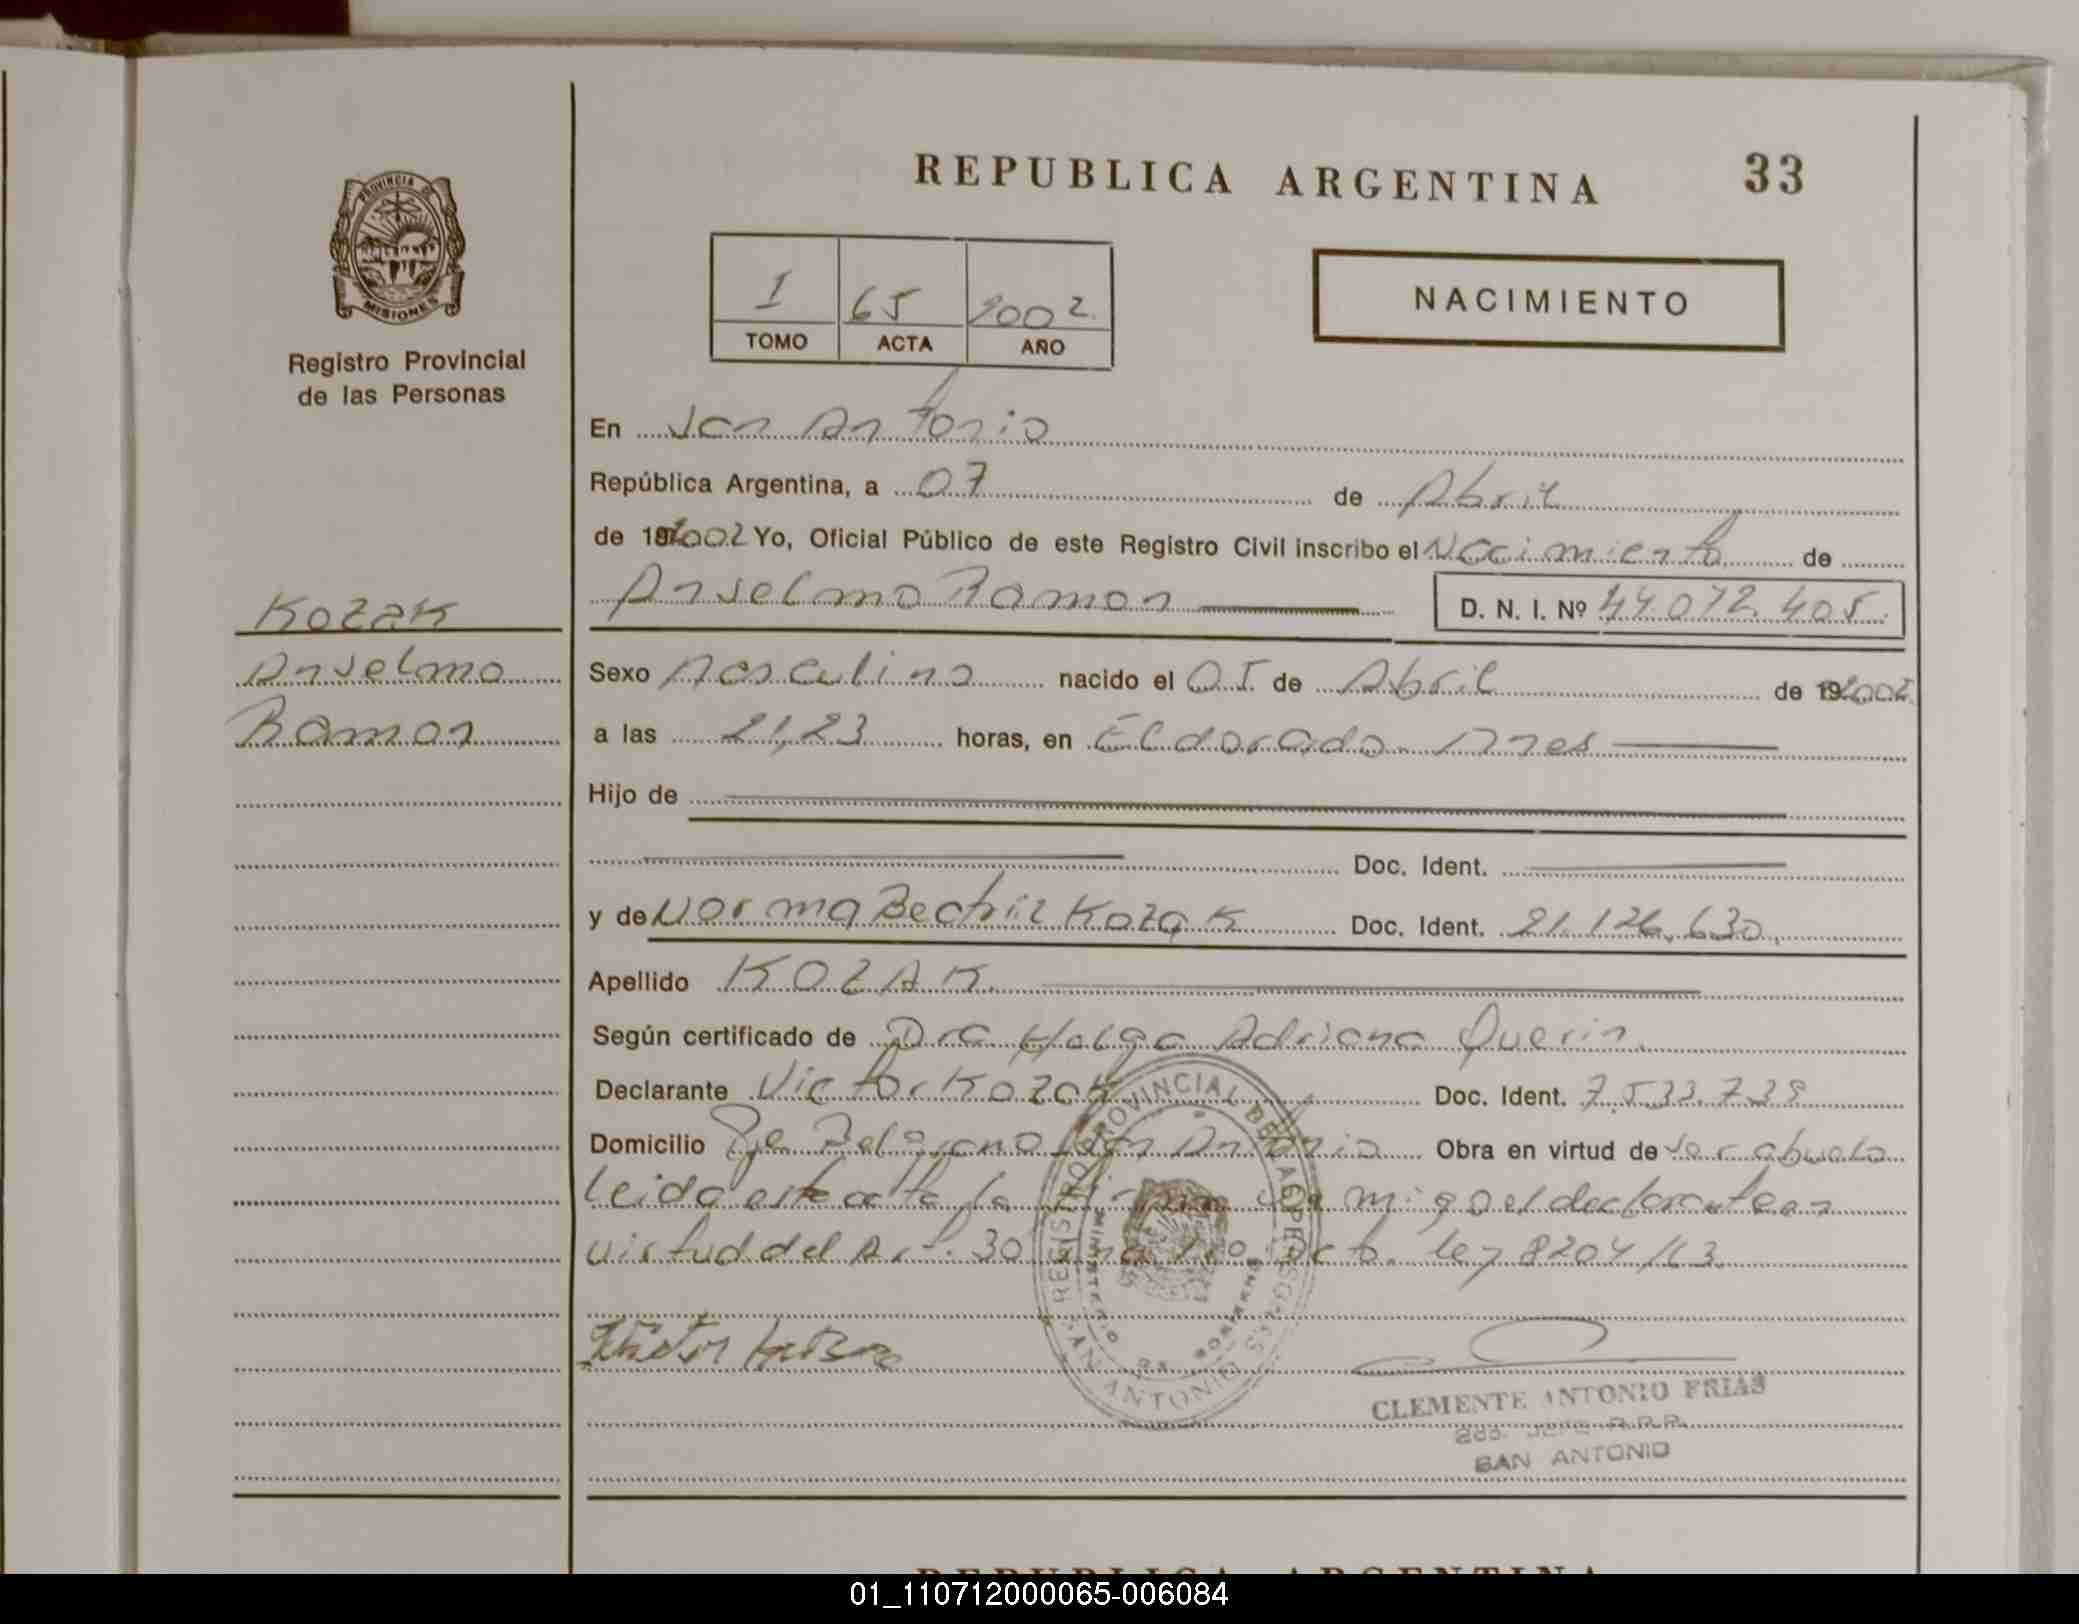 REPUBLICA ARGENTINA 33
PROVINCIA DE MISIONES
Registro Provincial
de las Personas
1 65 2002
TOMO ACTA AÑO
NACIMIENTO
En San Antonio
República Argentina, a 07 de Abril
de 192002 Yo, Oficial Público de este Registro Civil inscribo el Nacimiento de
Kozak
Anselmo
Ramon
Anselmo Ramon D. N. I. Nº 44.072.405.
Sexo Masculino nacido el 01 de Abril de 192002
a las 21,23 horas, en Eldorado Mnes
Hijo de
Doc. Ident.
y de Norma Beatriz Kozak Doc. Ident. 21.126.630.
Apellido KOZAK.
Según certificado de Dra Holga Adriana Querin.
Declarante Victor Kozak Doc. Ident. 7.533.739
Domicilio Belgrano San Antonio Obra en virtud de ser abuelo
Leida este acta la firman conmigo el declarante en
virtud del Art. 30 Dcto. Ley 8204/63.
REGISTRO PROVINCIAL DE LAS PERSONAS
MINISTERIO DE GOBIERNO
SAN ANTONIO
CLEMENTE ANTONIO FRIAS
2do. JEFE R.P.P.
SAN ANTONIO
REPUBLICA ARGENTINA
01_110712000065-006084